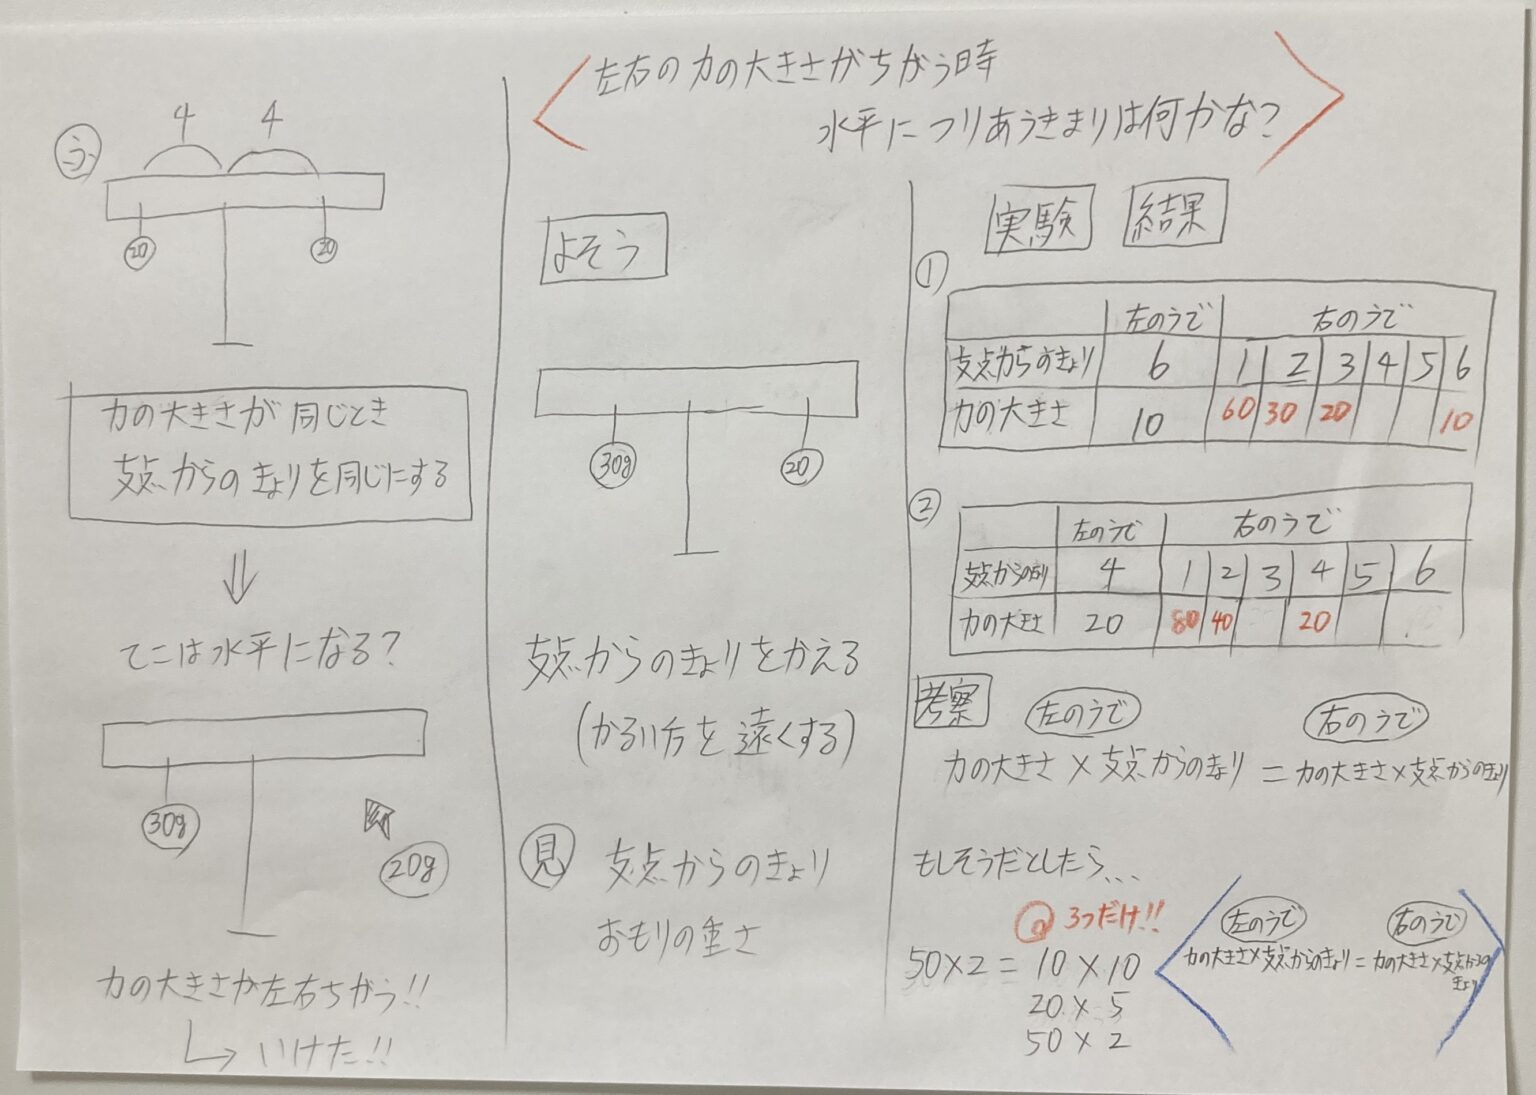 ふ
4 4
20 20
力の大きさが同じとき
支点からのきょりを同じにする
てこは水平になる?
30g
20g
力の大きさが左右ちがう!!
いけた!!
左右の力の大きさがちがう時
水平につりあうきまりは何かな?
よそう
30g 20
支点からのきょりをかえる
(かるい方を遠くする)
見 支点からのきょり
おもりの重さ
実験 結果
①
左のうで 右のうで
支点からのきょり 6 1 2 3 4 5 6
力の大きさ 10 60 30 20 10
②
左のうで 右のうで
支点からのきょり 4 1 2 3 4 5 6
力の大きさ 20 80 40 20
考察 左のうで 右のうで
力の大きさ×支点からのきょり=力の大きさ×支点からのきょり
もしそうだとしたら...
3つだけ!!
50×2=10×10
20×5
50×2
左のうで 右のうで
力の大きさ×支点からのきょり=力の大きさ×支点からの
きょり